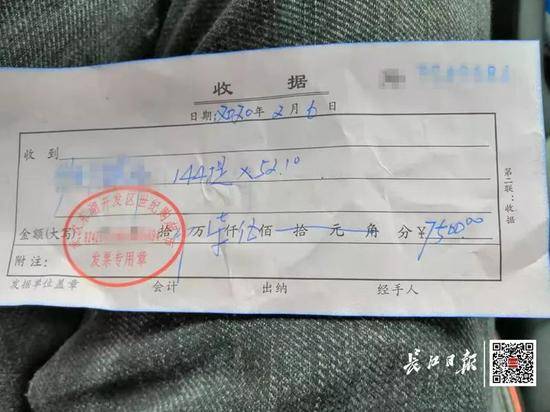 收据
日期:2020年2月6日
收到
144提×52.10
金额(大写) 拾 万柒仟伍佰 拾 元 角 分 ¥7500.00
附注:
开发区世纪
发票专用章
发据单位盖章 会计 出纳 经手人
第二联:收据
长江日报